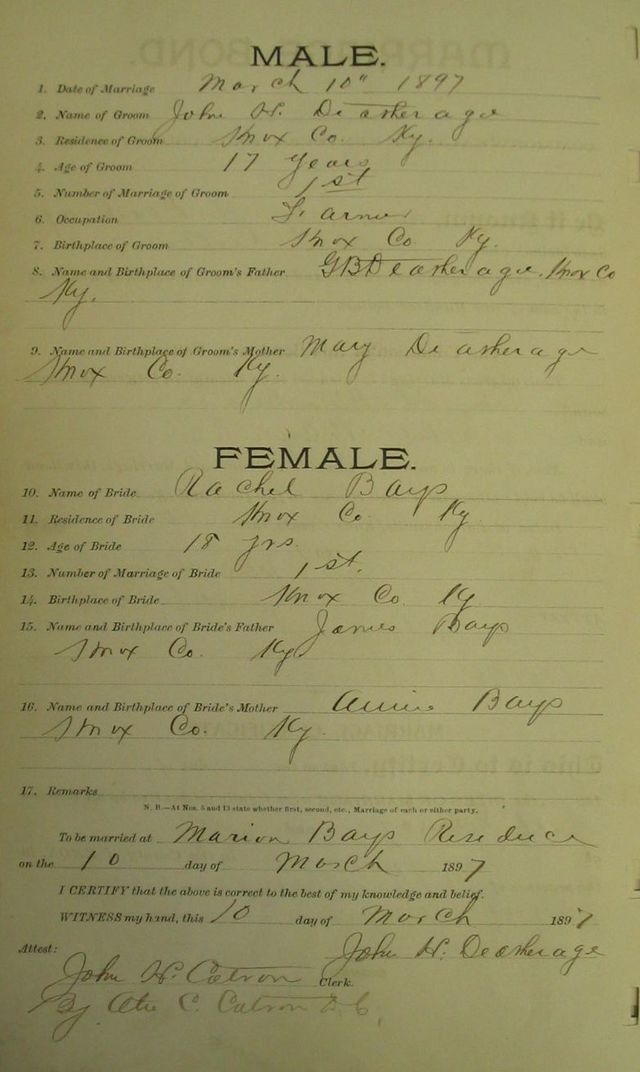 MALE.
1. Date of Marriage March 10" 1897
2. Name of Groom John H. Deatherage
3. Residence of Groom Knox Co. Ky.
4. Age of Groom 17 years
5. Number of Marriage of Groom 1st
6. Occupation Farmer
7. Birthplace of Groom Knox Co Ky.
8. Name and Birthplace of Groom's Father GB Deatherage. Knox Co
Ky.
9. Name and Birthplace of Groom's Mother Mary Deatherage
Knox Co. Ky.
FEMALE.
10. Name of Bride Rachel Bays
11. Residence of Bride Knox Co Ky
12. Age of Bride 18 yrs.
13. Number of Marriage of Bride 1st.
14. Birthplace of Bride Knox Co Ky
15. Name and Birthplace of Bride's Father James Bays
Knox Co. Ky
16. Name and Birthplace of Bride's Mother Annie Bays
Knox Co. Ky.
17. Remarks
N. B.—At Nos. 5 and 13 state whether first, second, etc., Marriage of each or either party.
To be married at Marion Bays Residence
on the 10 day of March 1897
I CERTIFY that the above is correct to the best of my knowledge and belief.
WITNESS my hand, this 10 day of March 1897
John H. Deatherage
Attest:
John H. Catron Clerk.
By C. Catron D.C.